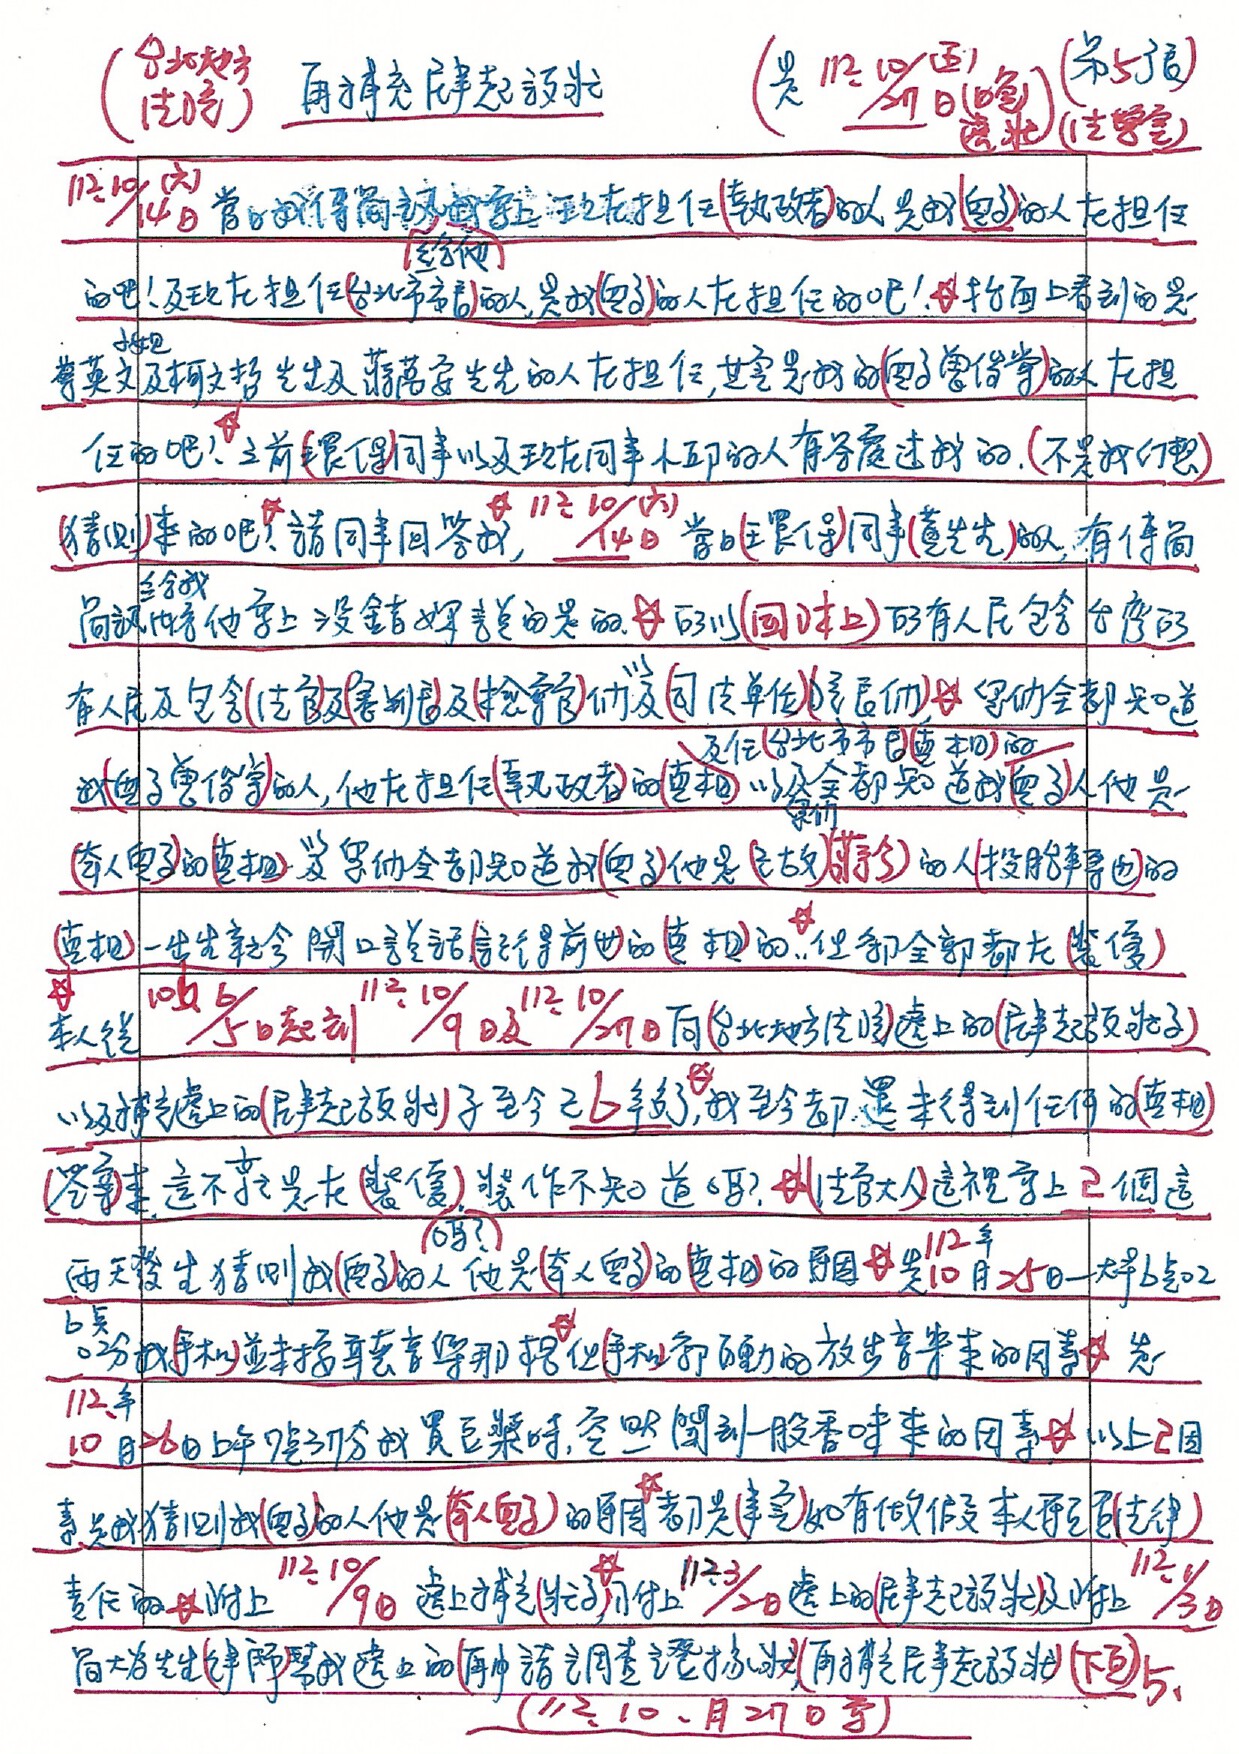 (台北地方法院) 再補充民事起訴狀 (是112.10/27日(五)(晚)遞狀) (第5頁) (法學室)
112.10/14日(六) 當日我傳簡訊給他我寫上現在担任(執政者)的人是我(兒子)的人在担任
的吧!及現在担任(台北市市長)的人,是我(兒子)的人在担任的吧!☆抬面上看到的是
蔡英文小姐及柯文哲先生及蔣萬安先生的人在担任,其實是我的(兒子曾偉)的人在担
任的吧!☆之前(主)同事以及現在同事小邱的人有答覆过我的.(不是我幻想)
(猜測)來的吧!☆請同事回答我,☆112.10/14日(六)當日(主)同事(黃先生)的人,有傳簡
簡訊給我內容他寫上没錯妳說的是的.☆所以(回本上)所有人民包含台灣所
有人民及包含(法官)及(審判長)及(檢察官)他們以及(司法單位)(院長們)☆他們全都知道
我(兒子曾偉)的人,他在担任(執政者)的(真相)及任(台北市市長)(真相)的以及他們全都知道我(兒子)人他是
(本人兒子)的(真相)以及他們全都知道我(兒子)他是(已故)(蔣)的人(投胎轉世)的
(真相)一出生就會開口說話,記得前世的(真相)的.☆但卻全部都在(裝傻)
☆本人從106.6/5日起到112.10/9日及112.10/27日向(台北地方法院)遞上的(民事起訴狀子)
以及補充遞上的(民事起訴狀)子至今已6年多了,☆我至今都還未得到任何的(真相)
(答案)來,這不就是在(裝傻),裝作不知道嗎?☆(法官大人)這裡寫上2個這
兩天發生猜測我(兒子)的人他是(本人兒子)的(真相)(嗎?)的原因☆是112年10月25日一大早6点02
6点02分我(手机)並未按耳裝音樂那檔☆但(手机)卻自動的放出音樂來的因素☆是
112.年10月26日上午7点37分我買豆漿時,突然聞到一股香味來的因素☆以上2因
素是我猜測我(兒子)的人他是(本人兒子)的原因☆都是(事實)如有做假本人願負(法律)
責任的☆附上112.10/9日遞上補充(狀子)☆附上112.3/2日遞上的(民事起訴狀)及附上112.1/3日
簡大為先生(律師)幫我遞上的(再申請之調查證據狀)(再補充民事起訴狀)(下頁)5.
(112.10.月27日寫)